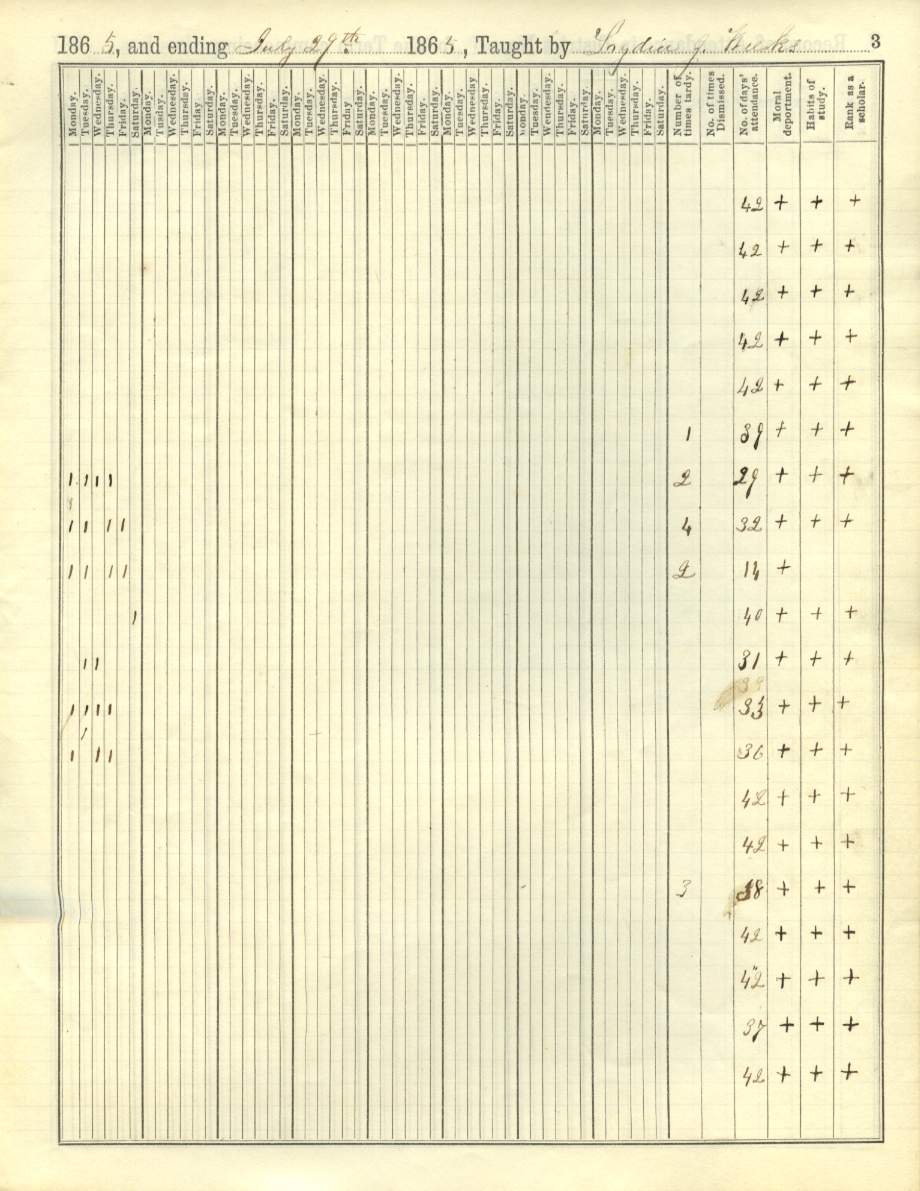 1865, and ending July 29th 1865, Taught by Lydia J. 3
Monday. Tuesday. Wednesday. Thursday. Friday. Saturday. Monday. Tuesday. Wednesday. Thursday. Friday Saturday. Monday. Tuesday. Wednesday. Thursday. Friday. Saturday. Monday. Tuesday. Wednesday. Thursday. Friday Saturday. Monday. Tuesday. Wednesday. Thursday. Friday. Saturday. Monday. Tuesday. Wednesday Thursday. Friday. Saturday. Monday. Tuesday. Wednesday. Thursday. Friday. Saturday. Monday. Tuesday. Wednesday. Thursday. Friday. Saturday. Number of times tardy. No. of times Dismissed. No. of days' attendance. Moral deportment. Habits of study. Rank as a scholar.
42 + + +
42 + + +
42 + + +
42 + + +
42 + + +
1 39 + + +
1 1 1 1 2 29 + + +
1 1 1 1 4 32 + + +
1 1 1 1 2 14 +
1 40 + + +
1 1 31 + + +
1 1 1 1 33 + + +
1 1 1 36 + + +
42 + + +
42 + + +
3 38 + + +
42 + + +
42 + + +
37 + + +
42 + + +